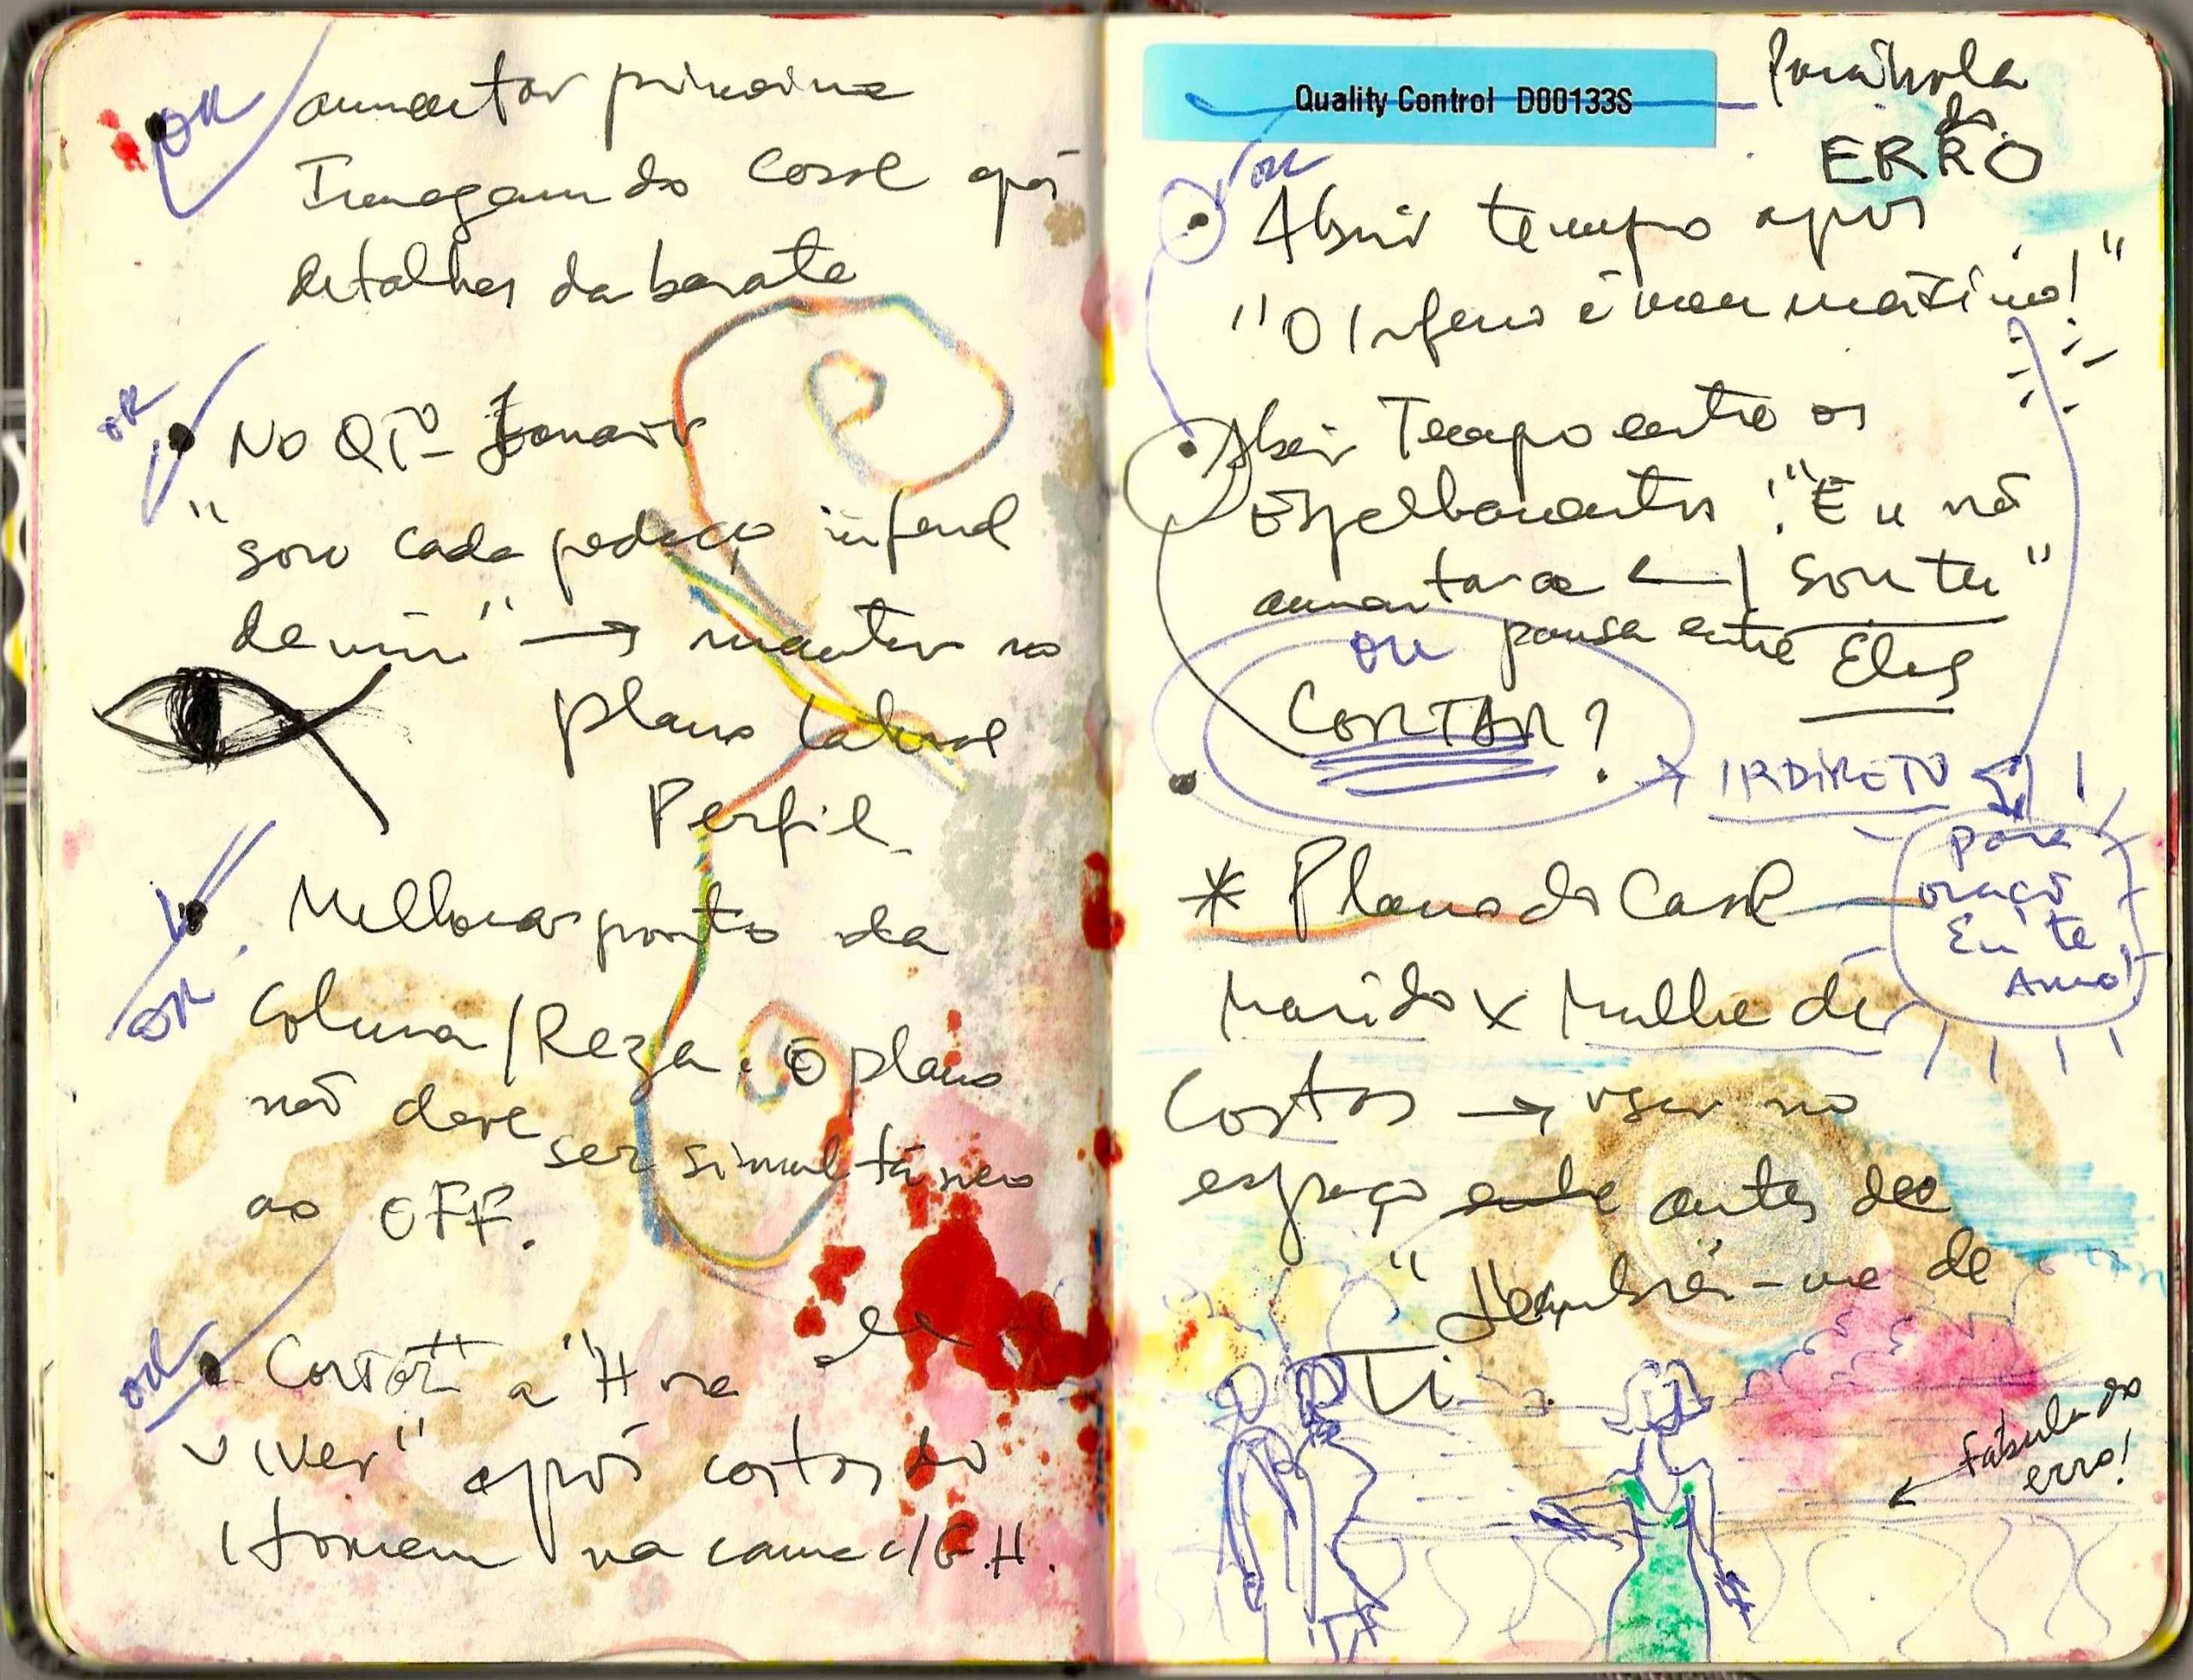 OK aumentar primeira
Imagem do casal após
detalhes da barata
OK
No QTº
"sou cada pedaço infernal
de mim" → manter no
plano lateral
Perfil
Melhorar ponto da
OK
coluna/Reza. O plano
não deve ser simultâneo
ao OFF.
OK
Cortar a "Hora de
viver" após costas do
Homem na cama c/ G.H.
Quality Control D00133S
Parábola
do
ERRO
OK
Abrir tempo após
"O Inferno é meu máximo!"
Abrir Tempo entre os
Espelhamentos: "Eu não
aumentar a ← | sou tu"
pausa entre Eles
OU
CORTAR?
→ IR DIRETO
para
oração
Eu te
Amo!
* Plano do Casal
Marido x Mulher de
costas → usar no
espaço antes de
"Deslumbrei-me de
Ti
Fábula do
erro!